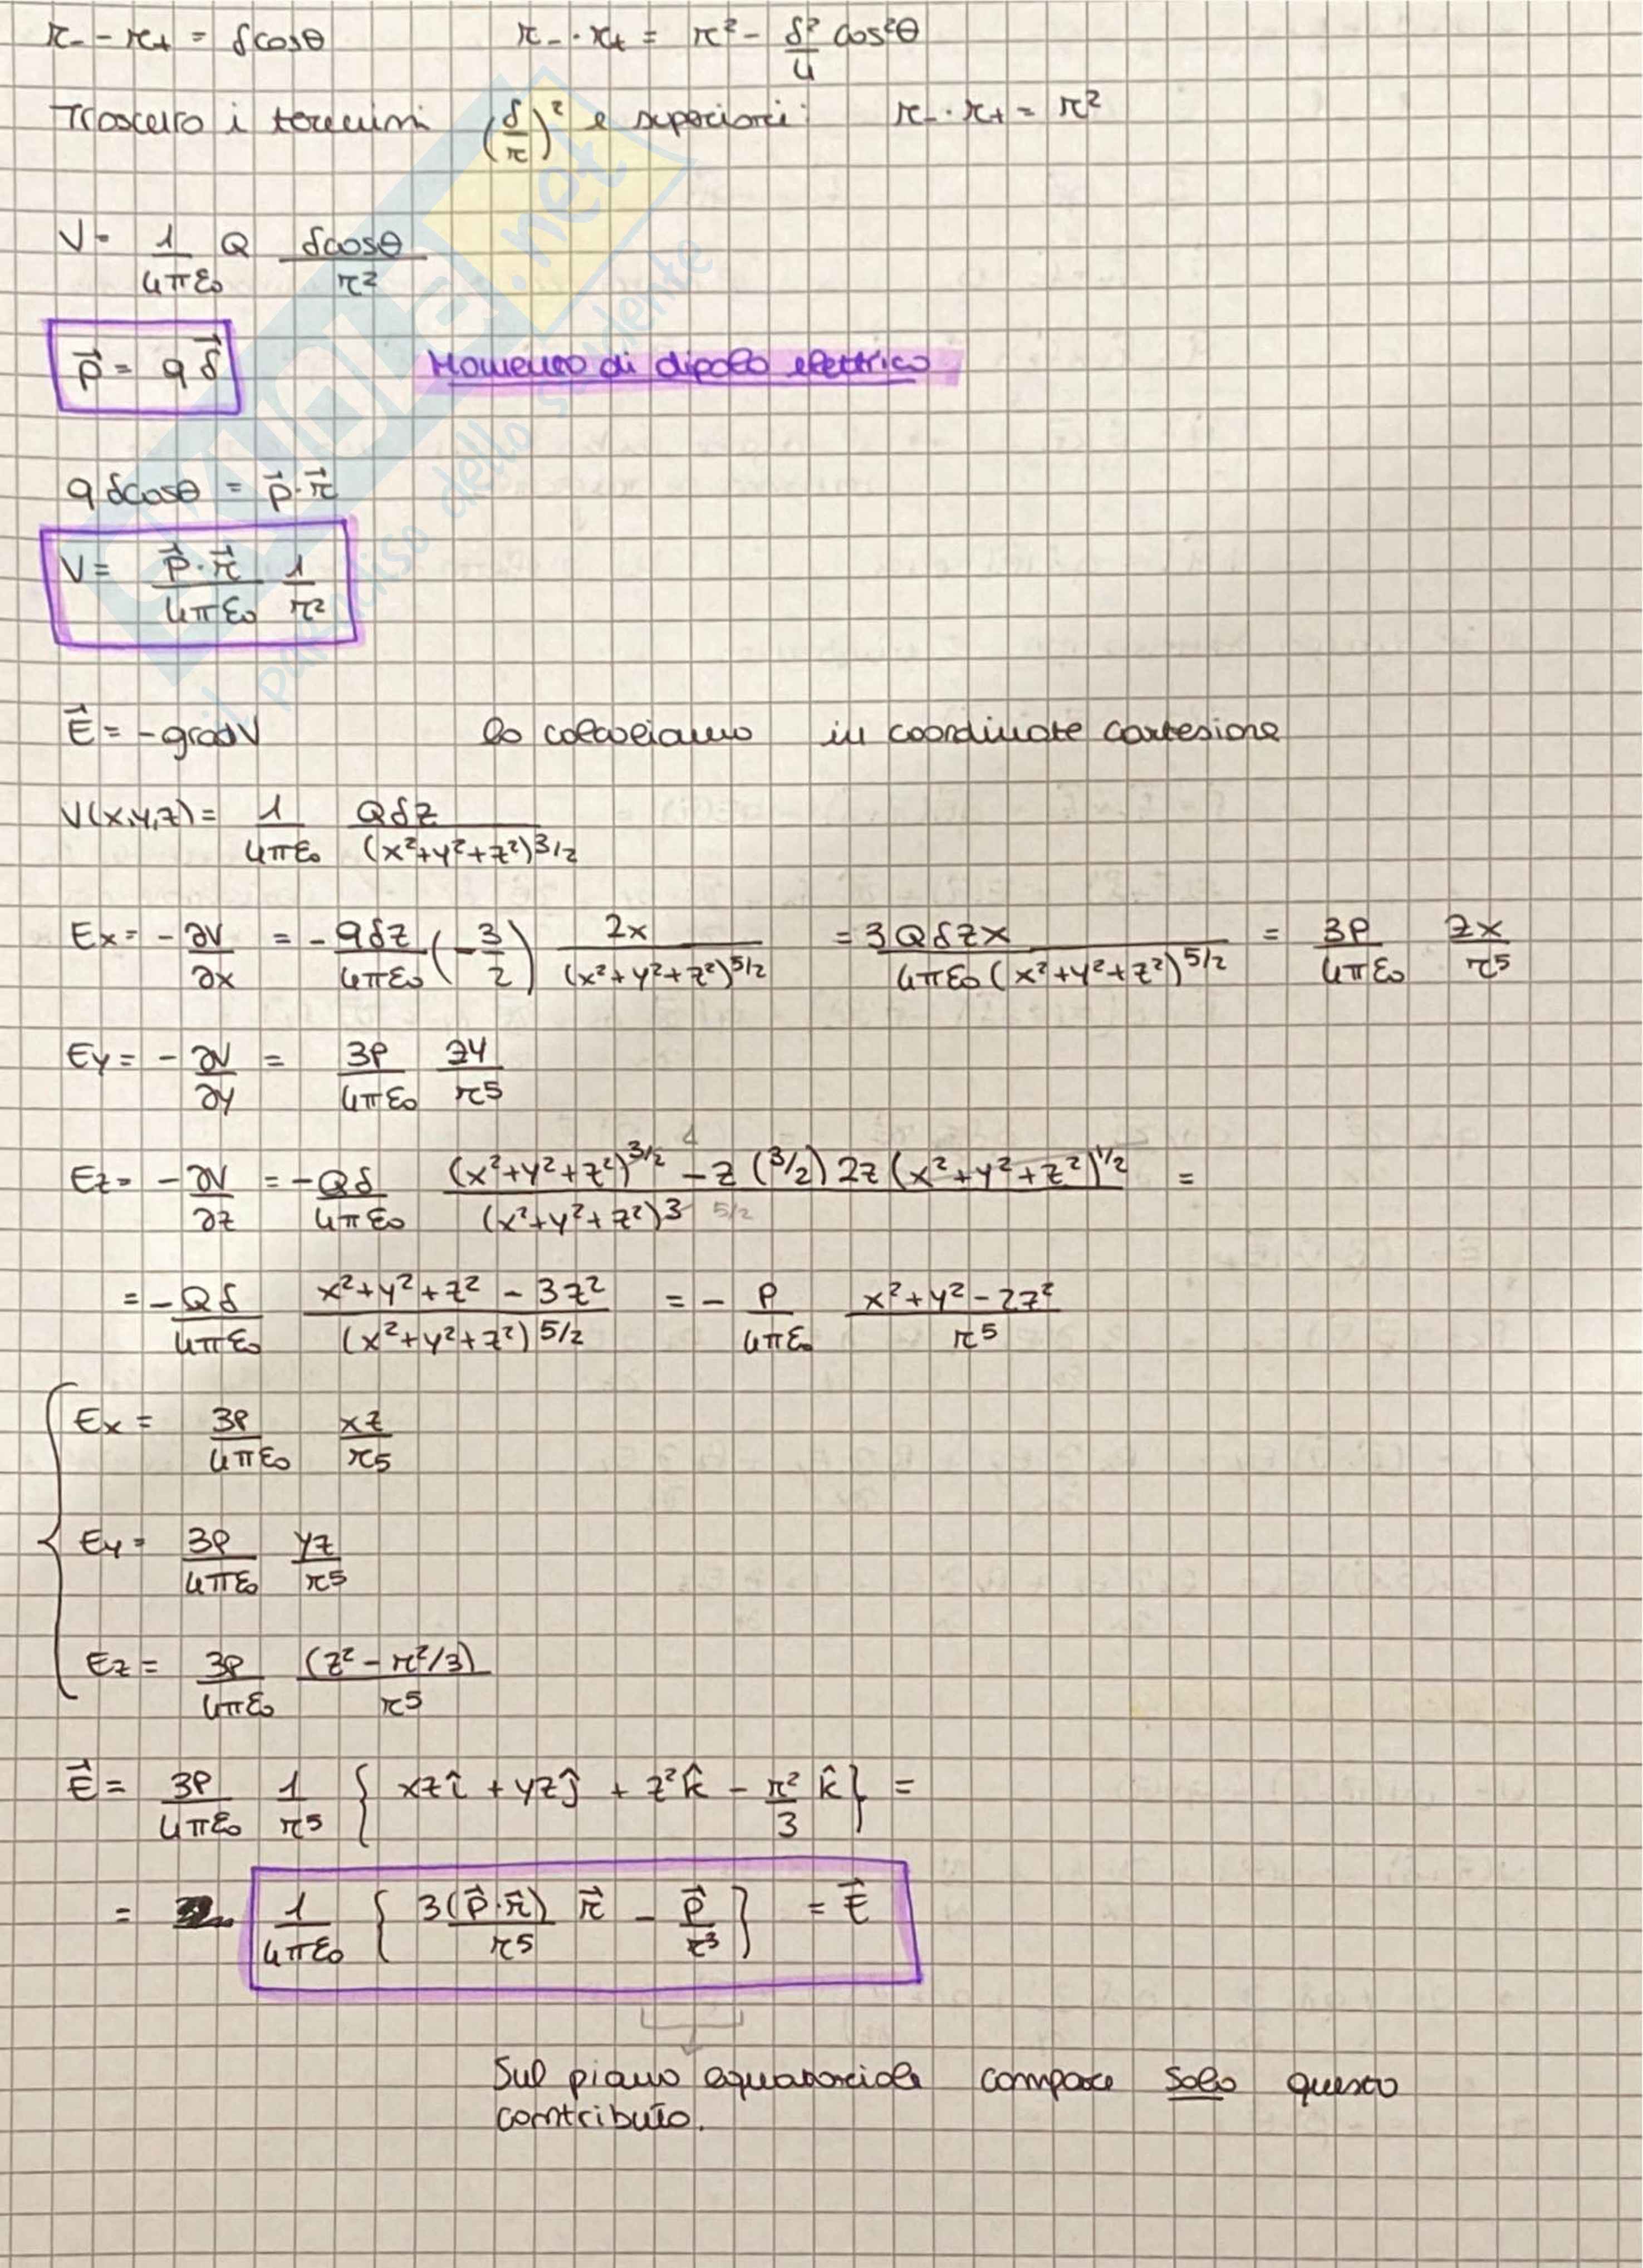 r₋ - r₊ = δcosθ    r₋ · r₊ = r² - δ²/4 cos²θ
Trascuro i termini (δ/r)² e superiori: r₋ · r₊ = r²
V = 1/4πε₀ Q δcosθ/r²
p⃗ = qδ⃗    Momento di dipolo elettrico
qδcosθ = p⃗·r⃗
V = p⃗·r⃗/4πε₀ 1/r²
E⃗ = -gradV    lo calcoliamo in coordinate cartesiane
V(x,y,z) = 1/4πε₀ Qδz/(x²+y²+z²)^3/2
Ex = -∂V/∂x = -qδz/4πε₀ (-3/2) 2x/(x²+y²+z²)^5/2 = 3Qδzx/4πε₀(x²+y²+z²)^5/2 = 3p/4πε₀ zx/r⁵
Ey = -∂V/∂y = 3p/4πε₀ zy/r⁵
Ez = -∂V/∂z = -Qδ/4πε₀ (x²+y²+z²)^3/2 - z(3/2)2z(x²+y²+z²)^1/2 / (x²+y²+z²)³ 5/2 =
= -Qδ/4πε₀ x²+y²+z² - 3z²/(x²+y²+z²)^5/2 = - p/4πε₀ x²+y²-2z²/r⁵
Ex = 3p/4πε₀ xz/r⁵
Ey = 3p/4πε₀ yz/r⁵
Ez = 3p/4πε₀ (z² - r²/3)/r⁵
E⃗ = 3p/4πε₀ 1/r⁵ { xzî + yzĵ + z²k̂ - r²/3 k̂ } =
= 1/4πε₀ { 3(p⃗·r⃗)/r⁵ r⃗ - p⃗/r³ } = E⃗
Sul piano equatoriale compare solo questo
contributo.
.net
il paradiso dello studente